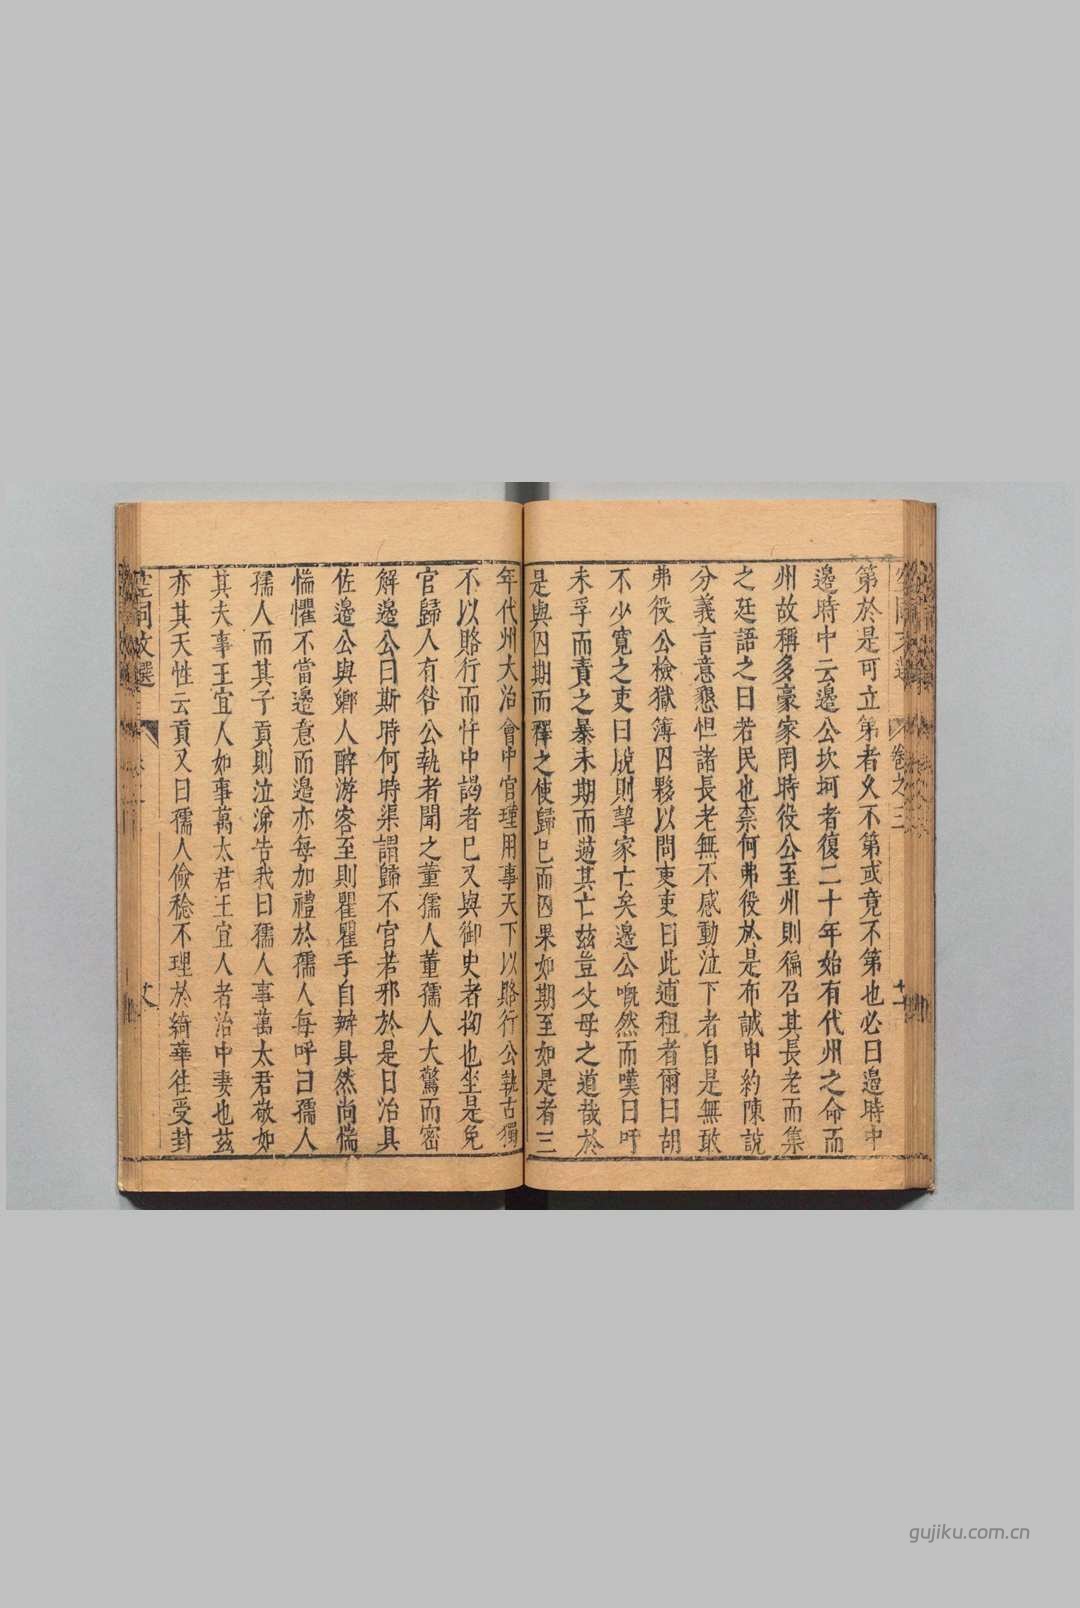 第於是可立第者久不第或竟不第也必曰邉時中
邉時中云邉公坎坷者復二十年始有代州之命而
州故稱多豪家罔時役公至州則徧召其長老而集
之廷語之曰若民也柰何弗役於是布誠申約陳說
分義言意懇怛諸長老無不感動泣下者自是無敢
弗役公檢獄簿囚夥以問吏吏曰此逋租者爾曰胡
不少寛之吏曰脫則挈家亡矣邉公嘅然而嘆曰吁
未孚而責之暴未期而逋其亡兹豈父母之道哉於
是與囚期而釋之使歸已而囚果如期至如是者三
年代州大治會中官瑾用事天下以賂行公執古獨
不以賂行而忤中謁者已又與御史者拗也坐是免
官歸人有咎公執者聞之董孺人董孺人大驚而密
解邉公曰斯時何時渠謂歸不官若邪於是日治具
佐邉公與鄉人醉游客至則瞿瞿手自辦具然尚惴
惴懼不當邉意而邉亦每加禮於孺人每呼曰孺人
孺人而其子貢則泣涕告我曰孺人事萬太君敬如
其夫事王宜人如事萬太君王宜人者治中妻也兹
亦其天性云貢又曰孺人儉稔不理於綺華徃受封
空同文選
卷之三
gujiku.com.cn